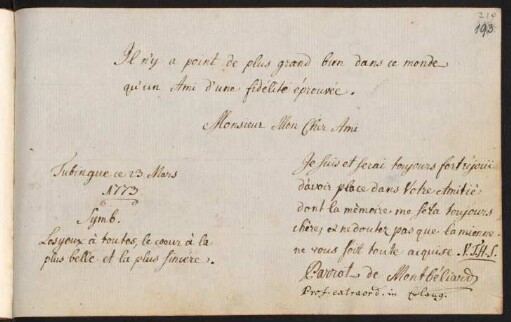 210
193.
Il n'y a point de plus grand bien dans ce monde
qu'un Ami d'une fidélité éprouvée.
Monsieur Mon Cher Ami
Tubingue ce 23 Mars
1773
Symb.
Les yeux à toutes, le coeur à la
plus belle et la plus sincere.
Je suis et serai toujours fort réjoui
d'avoir place dans Votre Amitié
dont la mémoire me sera toujours
chère, et ne doutez pas que la mienne
ne vous soit toute acquise.
Parrot de Montbéliard
Prof. extraord. in Erlang.